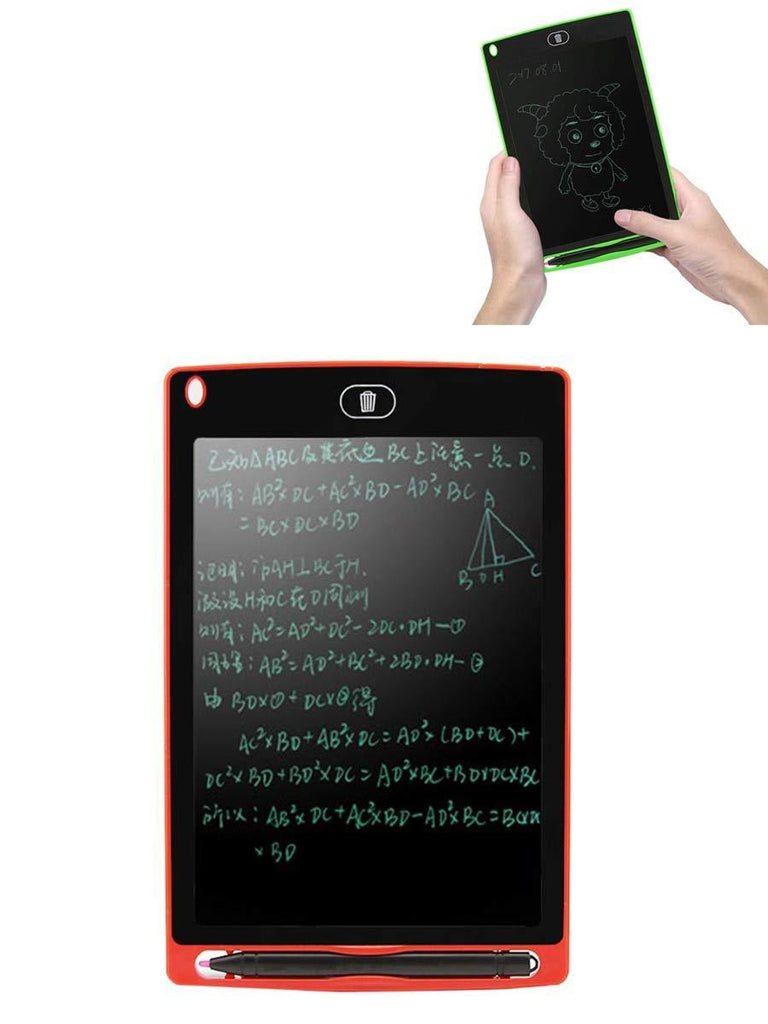 2017.08.01
已知△ABC及其底边BC上任意一点D.
则有：AB²×DC+AC²×BD-AD²×BC
=BC×DC×BD
A
B D H C
证明：作AH⊥BC于H.
假设H和C在D同侧
则有：AC²=AD²+DC²-2DC·DH—①
同理：AB²=AD²+BC²+2BD·DH—②
由 BD×①+DC×②得
AC²×BD+AB²×DC=AD²×(BD+DC)+
DC²×BD+BD²×DC=AD²×BC+BD×DC×BC
所以：AB²×DC+AC²×BD-AD²×BC=BC×DC
×BD